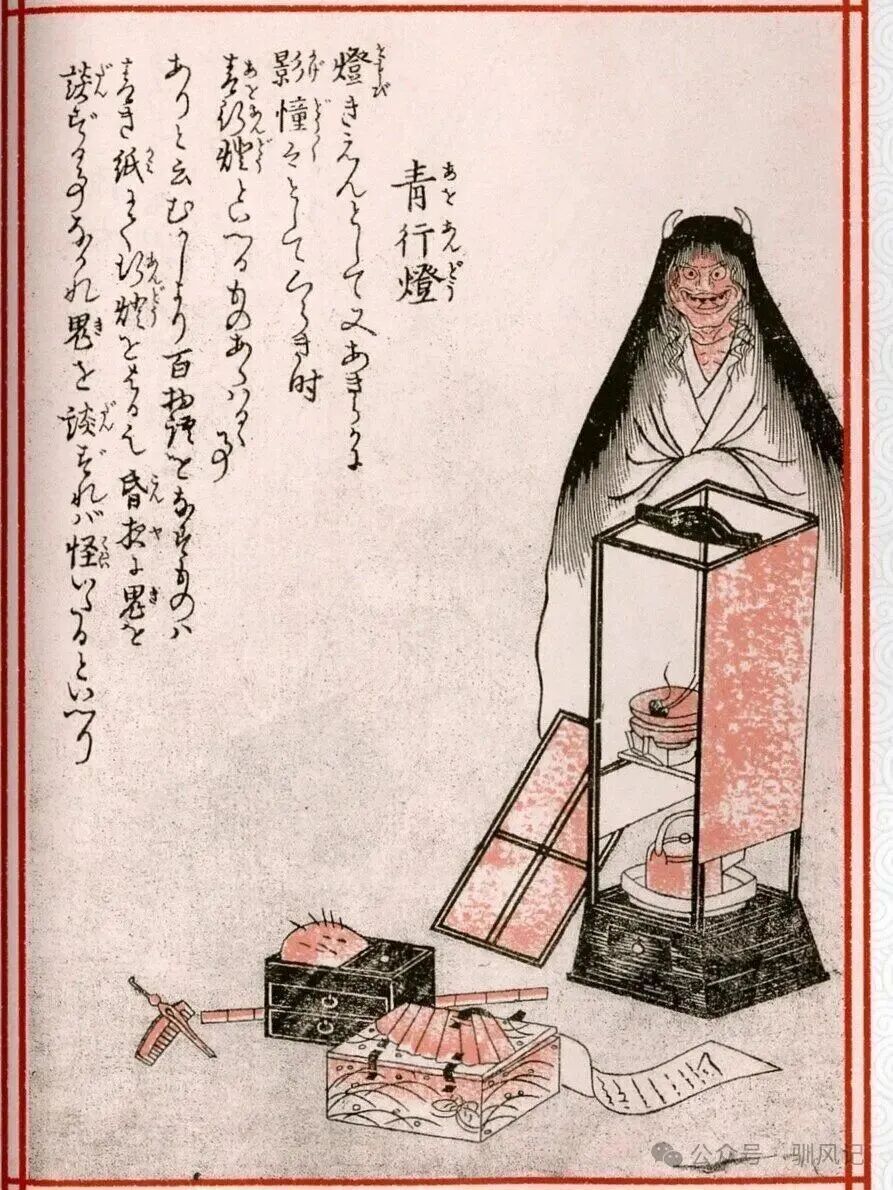 青行燈
燈きえんとして又あきらかに
影憧々としてくらき時
青行燈といへるものあらはるゝ事
ありと云むかしより百物語をなすものハ
青き紙にて行燈をはる也昏夜に鬼を
談ずる事なかれ鬼を談ずれバ怪いたるといへり
公众号 · 驯风记